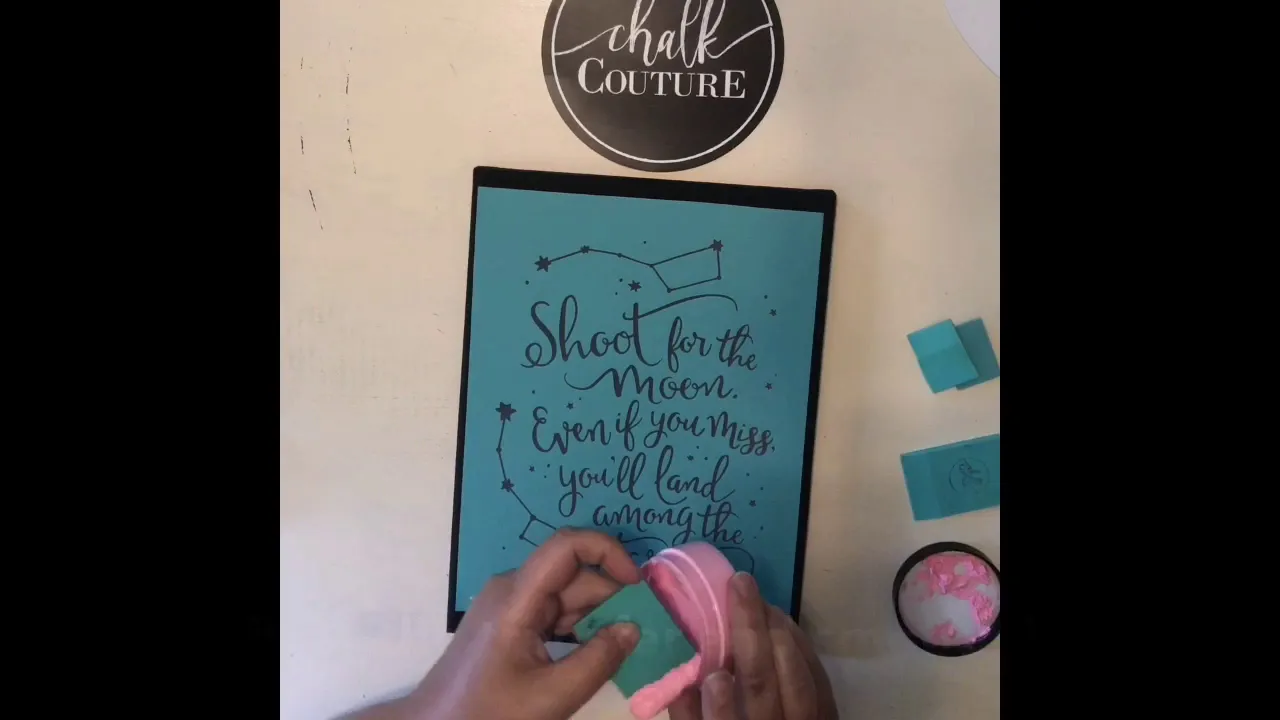 chalk
COUTURE
Shoot for the
Moon.
Even if you miss,
you'll land
among the